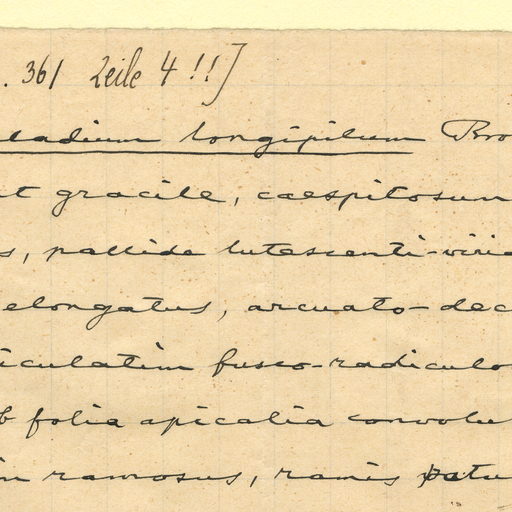 . 361 Zeile 4 !!]
ladium longipilum Bro
t gracile, caespitosum
s, pallide lutescenti-virid
elongatus, arcuato-dec
iculatim fusco-radiculo
b folia apicalia convolu
in ramosus, ramis patu